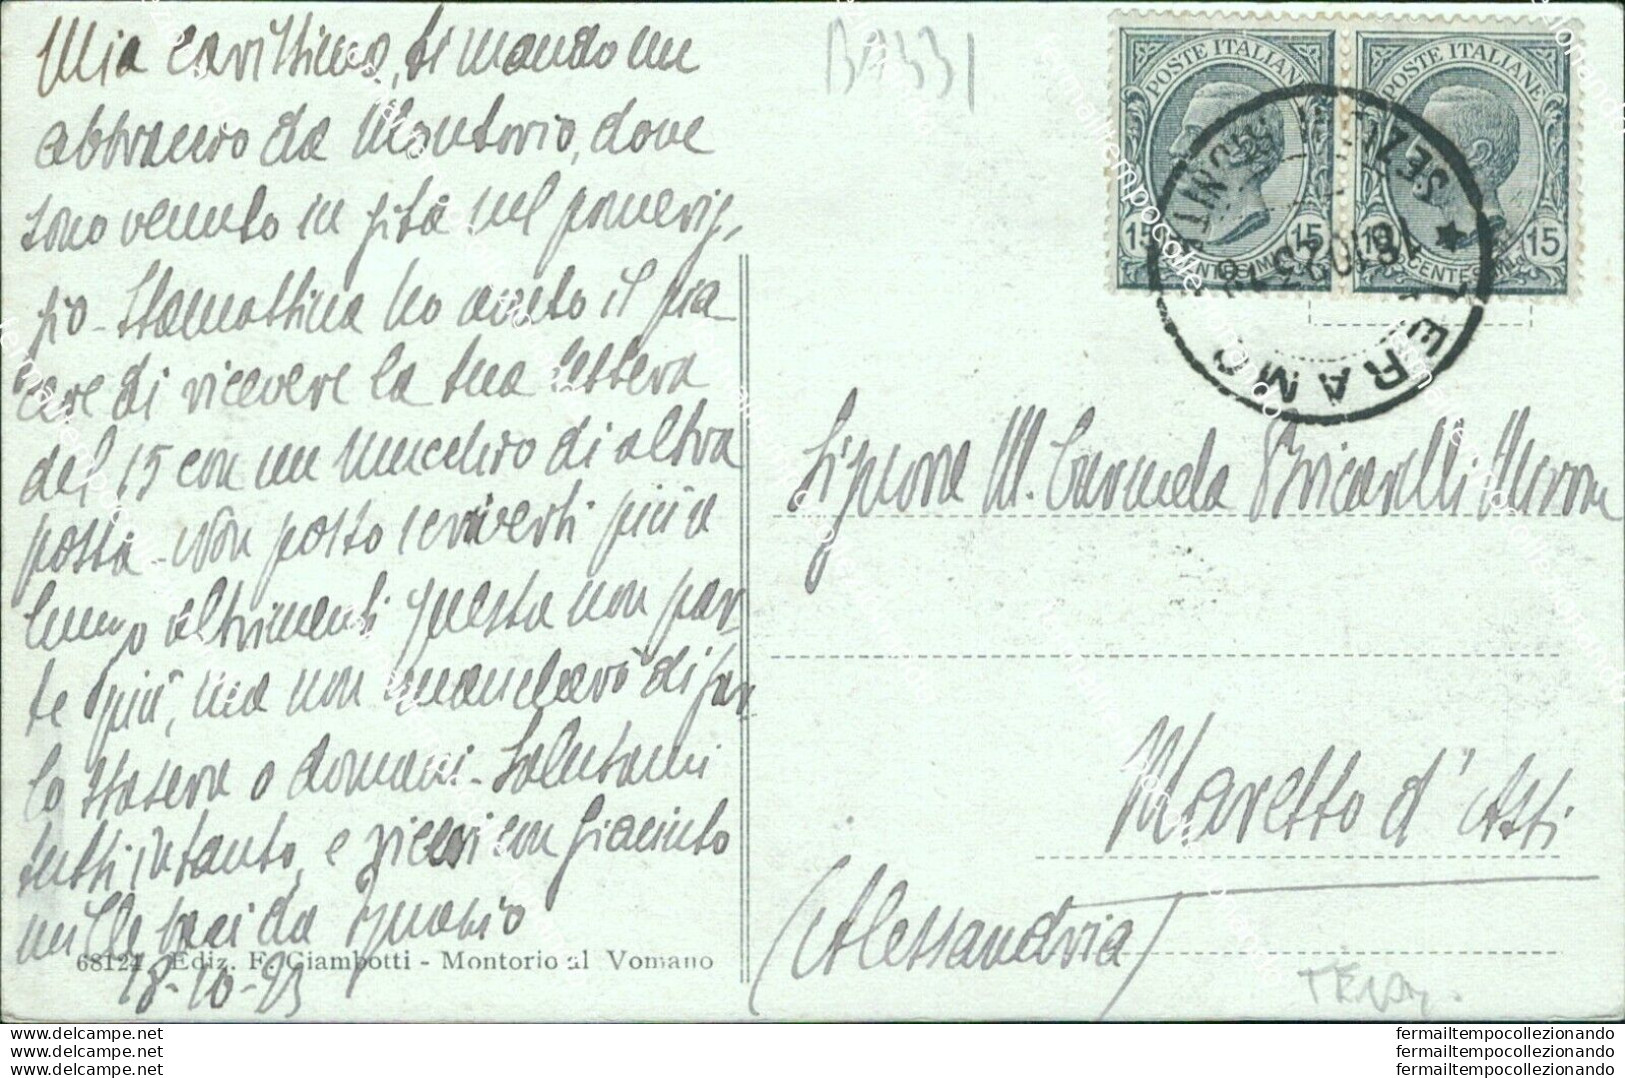 Mia carissima, ti mando un
abbraccio da Montorio, dove
sono venuto in gita nel pomerig-
gio - Stamattina ho avuto il pia
cere di ricevere la tua lettera
del 15 con un mucchio di altra
posta - Non posso scriverti più a
lungo altrimenti questa non par-
te più, ma non mancherò di far-
lo stasera o domani - Salutami
tutti intanto, e ricevi con Giacinto
mille baci da Ignazio
68124 Ediz. F. Ciambotti - Montorio al Vomano
18-10-23
B4331
POSTE ITALIANE
15 15
CENTESIMI
POSTE ITALIANE
15 15
CENTESIMI
TERAMO
18 10 23
Signora M. Carmela Bricarelli
Maretto d'Asti
(Alessandria)
www.delcampe.net
www.delcampe.net
www.delcampe.net
fermailtempocollezionando
fermailtempocollezionando
fermailtempocollezionando